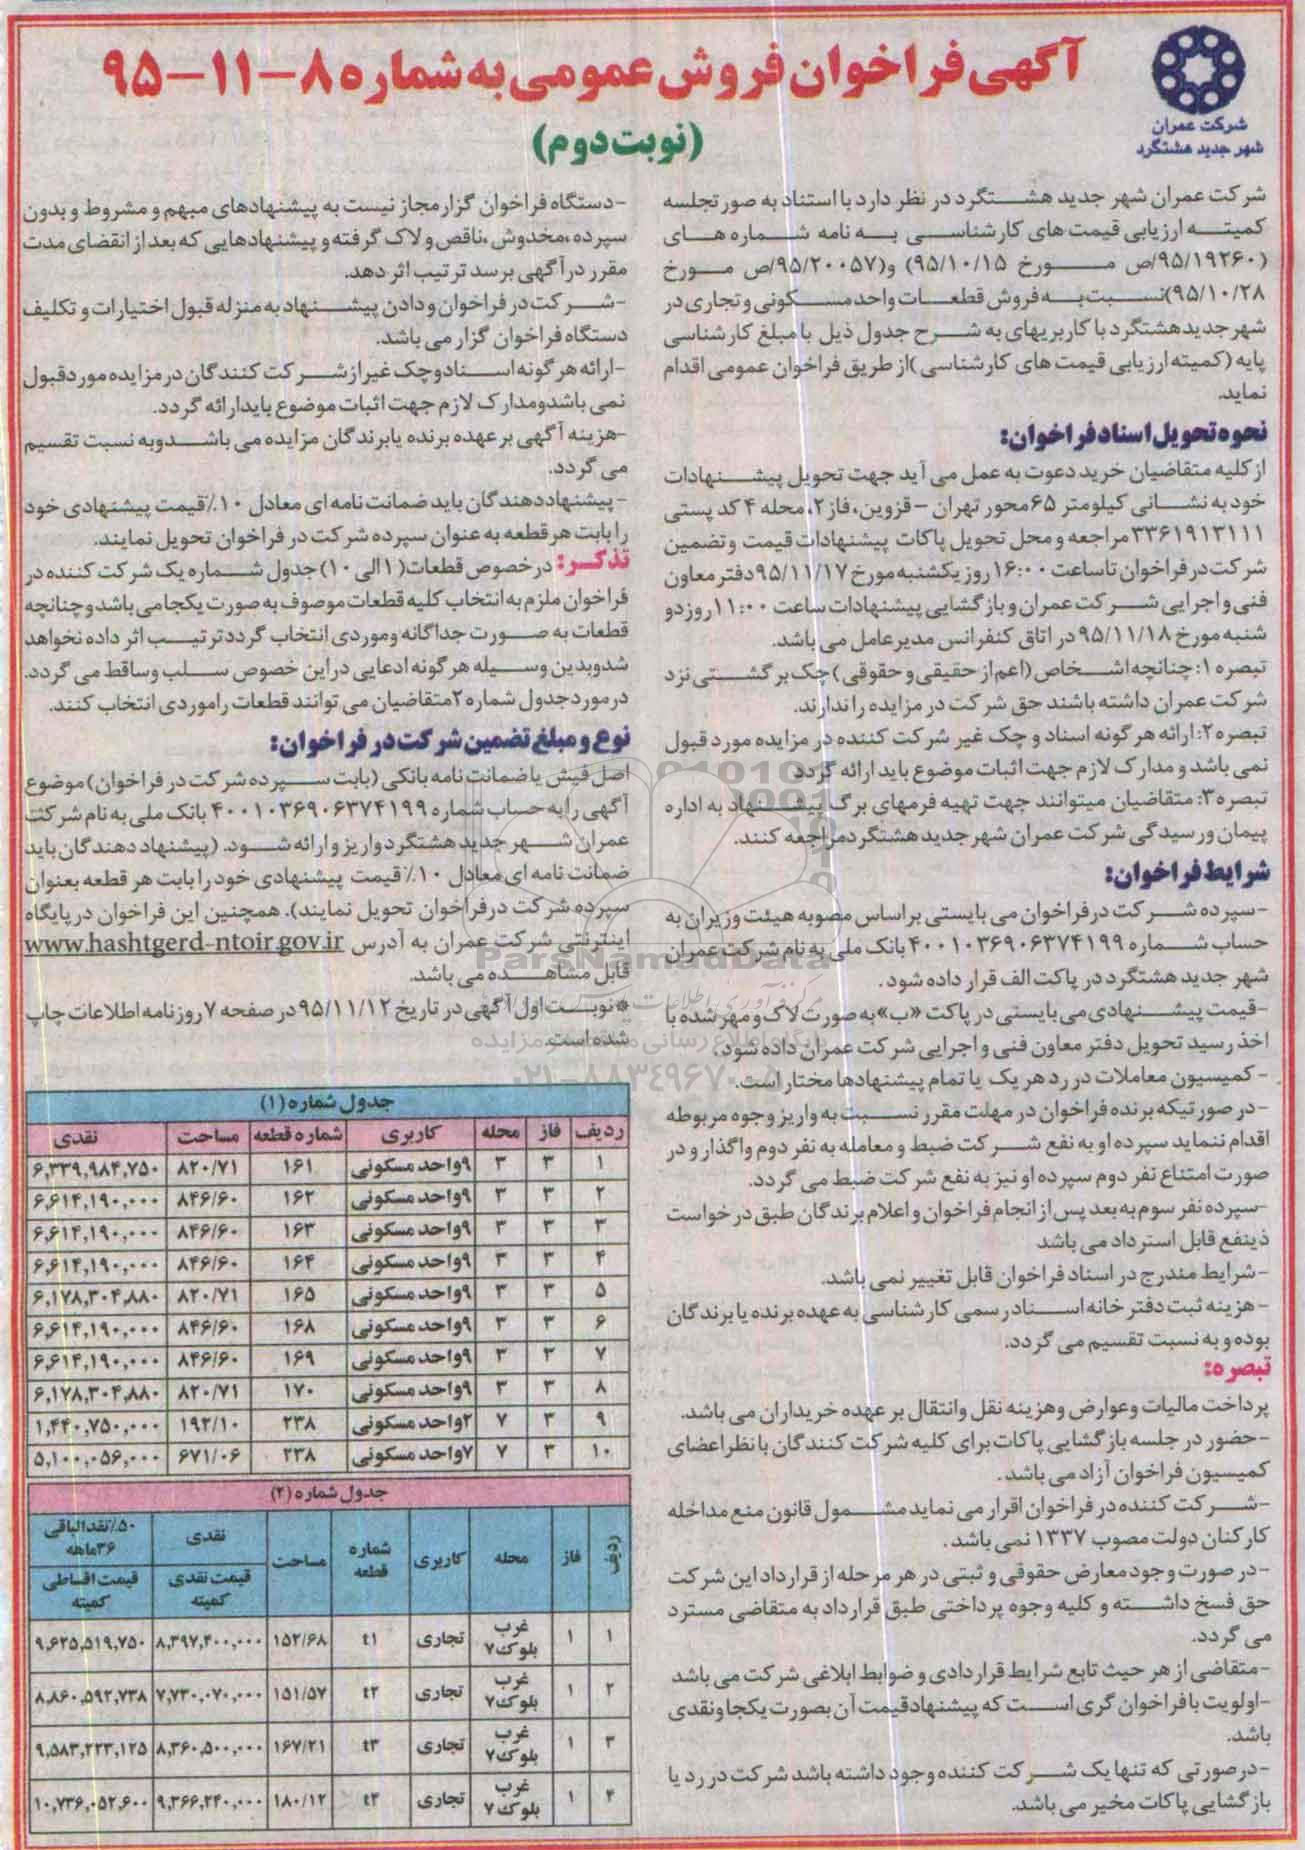 شرکت عمران
شهر جدید هشتگرد
آگهی فراخوان فروش عمومی به شماره ۸-۱۱-۹۵
(نوبت دوم)
شرکت عمران شهر جدید هشتگرد در نظر دارد با استناد به صورتجلسه
کمیته ارزیابی قیمت های کارشناسی به نامه شماره های
(۹۵/۱۹۲۶۰/ص مورخ ۹۵/۱۰/۱۵) و (۹۵/۲۰۰۵۷/ص مورخ
۹۵/۱۰/۲۸) نسبت به فروش قطعات واحد مسکونی و تجاری در
شهر جدید هشتگرد با کاربریهای به شرح جدول ذیل با مبلغ کارشناسی
پایه (کمیته ارزیابی قیمت های کارشناسی) از طریق فراخوان عمومی اقدام
نماید.
نحوه تحویل اسناد فراخوان:
از کلیه متقاضیان خرید دعوت به عمل می آید جهت تحویل پیشنهادات
خود به نشانی کیلومتر ۶۵ محور تهران - قزوین، فاز ۲، محله ۴ کد پستی
۳۳۶۱۹۱۳۱۱۱ مراجعه و محل تحویل پاکات پیشنهادات قیمت و تضمین
شرکت در فراخوان تا ساعت ۱۶:۰۰ روز یکشنبه مورخ ۹۵/۱۱/۱۷ دفتر معاون
فنی و اجرایی شرکت عمران و بازگشایی پیشنهادات ساعت ۱۱:۰۰ روز دو
شنبه مورخ ۹۵/۱۱/۱۸ در اتاق کنفرانس مدیرعامل می باشد.
تبصره ۱: چنانچه اشخاص (اعم از حقیقی و حقوقی) چک برگشتی نزد
شرکت عمران داشته باشند حق شرکت در مزایده را ندارند.
تبصره ۲: ارائه هر گونه اسناد و چک غیر شرکت کننده در مزایده مورد قبول
نمی باشد و مدارک لازم جهت اثبات موضوع باید ارائه گردد
تبصره ۳: متقاضیان میتوانند جهت تهیه فرمهای برگ پیشنهاد به اداره
پیمان و رسیدگی شرکت عمران شهر جدید هشتگرد مراجعه کنند.
شرایط فراخوان:
-سپرده شرکت در فراخوان می بایستی بر اساس مصوبه هیئت وزیران به
حساب شماره ۴۰۰۱۰۳۶۹۰۶۳۷۴۱۹۹ بانک ملی به نام شرکت عمران
شهر جدید هشتگرد در پاکت الف قرار داده شود.
-قیمت پیشنهادی می بایستی در پاکت «ب» به صورت لاک و مهر شده با
اخذ رسید تحویل دفتر معاون فنی و اجرایی شرکت عمران داده شود.
- کمیسیون معاملات در رد هر یک یا تمام پیشنهادها مختار است.
-در صورتیکه برنده فراخوان در مهلت مقرر نسبت به واریز وجوه مربوطه
اقدام ننماید سپرده او به نفع شرکت ضبط و معامله به نفر دوم واگذار و در
صورت امتناع نفر دوم سپرده او نیز به نفع شرکت ضبط می گردد.
-سپرده نفر سوم به بعد پس از انجام فراخوان و اعلام برندگان طبق درخواست
ذینفع قابل استرداد می باشد
-شرایط مندرج در اسناد فراخوان قابل تغییر نمی باشد.
- هزینه ثبت دفتر خانه اسناد رسمی کارشناسی به عهده برنده یا برندگان
بوده و به نسبت تقسیم می گردد.
تبصره:
پرداخت مالیات و عوارض و هزینه نقل و انتقال بر عهده خریداران می باشد.
-حضور در جلسه بازگشایی پاکات برای کلیه شرکت کنندگان با نظر اعضای
کمیسیون فراخوان آزاد می باشد.
-شرکت کننده در فراخوان اقرار می نماید مشمول قانون منع مداخله
کارکنان دولت مصوب ۱۳۳۷ نمی باشد.
-در صورت وجود معارض حقوقی و ثبتی در هر مرحله از قرارداد این شرکت
حق فسخ داشته و کلیه وجوه پرداختی طبق قرارداد به متقاضی مسترد
می گردد.
-متقاضی از هر حیث تابع شرایط قراردادی و ضوابط ابلاغی شرکت می باشد
-اولویت با فراخوان گری است که پیشنهاد قیمت آن بصورت یکجا و نقدی
باشد.
-در صورتی که تنها یک شرکت کننده وجود داشته باشد شرکت در رد یا
بازگشایی پاکات مخیر می باشد.
-دستگاه فراخوان گزار مجاز نیست به پیشنهادهای مبهم و مشروط و بدون
سپرده، مخدوش، ناقص و لاک گرفته و پیشنهادهایی که بعد از انقضای مدت
مقرر در آگهی برسد ترتیب اثر دهد.
-شرکت در فراخوان و دادن پیشنهاد به منزله قبول اختیارات و تکلیف
دستگاه فراخوان گزار می باشد.
-ارائه هر گونه اسناد و چک غیر از شرکت کنندگان در مزایده مورد قبول
نمی باشد و مدارک لازم جهت اثبات موضوع باید ارائه گردد.
-هزینه آگهی بر عهده برنده یا برندگان مزایده می باشد و به نسبت تقسیم
می گردد.
- پیشنهاد دهندگان باید ضمانت نامه ای معادل ۱۰٪ قیمت پیشنهادی خود
را بابت هر قطعه به عنوان سپرده شرکت در فراخوان تحویل نمایند.
تذکر: در خصوص قطعات (۱ الی ۱۰) جدول شماره یک شرکت کننده در
فراخوان ملزم به انتخاب کلیه قطعات موصوف به صورت یکجا می باشد و چنانچه
قطعات به صورت جداگانه و موردی انتخاب گردد ترتیب اثر داده نخواهد
شد و بدین وسیله هر گونه ادعایی در این خصوص سلب و ساقط می گردد.
در مورد جدول شماره ۲ متقاضیان می توانند قطعات را موردی انتخاب کنند.
نوع و مبلغ تضمین شرکت در فراخوان:
اصل فیش یا ضمانت نامه بانکی (بابت سپرده شرکت در فراخوان) موضوع
آگهی را به حساب شماره ۴۰۰۱۰۳۶۹۰۶۳۷۴۱۹۹ بانک ملی به نام شرکت
عمران شهر جدید هشتگرد واریز و ارائه شود. (پیشنهاد دهندگان باید
ضمانت نامه ای معادل ۱۰٪ قیمت پیشنهادی خود را بابت هر قطعه بعنوان
سپرده شرکت در فراخوان تحویل نمایند). همچنین این فراخوان در پایگاه
اینترنتی شرکت عمران به آدرس www.hashtgerd-ntoir.gov.ir
قابل مشاهده می باشد.
*نوبت اول آگهی در تاریخ ۹۵/۱۱/۱۲ در صفحه ۷ روزنامه اطلاعات چاپ
شده است.
ParsNamadData
پایگاه اطلاع رسانی مناقصه و مزایده
۰۲۱-۸۸۳۴۹۶۷۰-۵
جدول شماره (۱)
ردیف فاز محله کاربری شماره قطعه مساحت نقدی
۱ ۳ ۳ ۹واحد مسکونی ۱۶۱ ۸۲۰/۷۱ ۶,۳۳۹,۹۸۴,۷۵۰
۲ ۳ ۳ ۹واحد مسکونی ۱۶۲ ۸۴۶/۶۰ ۶,۶۱۴,۱۹۰,۰۰۰
۳ ۳ ۳ ۹واحد مسکونی ۱۶۳ ۸۴۶/۶۰ ۶,۶۱۴,۱۹۰,۰۰۰
۴ ۳ ۳ ۹واحد مسکونی ۱۶۴ ۸۴۶/۶۰ ۶,۶۱۴,۱۹۰,۰۰۰
۵ ۳ ۳ ۹واحد مسکونی ۱۶۵ ۸۲۰/۷۱ ۶,۱۷۸,۳۰۴,۸۸۰
۶ ۳ ۳ ۹واحد مسکونی ۱۶۸ ۸۴۶/۶۰ ۶,۶۱۴,۱۹۰,۰۰۰
۷ ۳ ۳ ۹واحد مسکونی ۱۶۹ ۸۴۶/۶۰ ۶,۶۱۴,۱۹۰,۰۰۰
۸ ۳ ۳ ۹واحد مسکونی ۱۷۰ ۸۲۰/۷۱ ۶,۱۷۸,۳۰۴,۸۸۰
۹ ۳ ۷ ۲واحد مسکونی ۲۳۸ ۱۹۲/۱۰ ۱,۴۴۰,۷۵۰,۰۰۰
۱۰ ۳ ۷ ۷واحد مسکونی ۲۳۸ ۶۷۱/۰۶ ۵,۱۰۰,۰۵۶,۰۰۰
جدول شماره (۲)
ردیف فاز محله کاربری شماره قطعه مساحت نقدی ۵۰٪ نقد الباقی ۳۶ماهه
قیمت نقدی کمیته قیمت اقساطی کمیته
۱ ۱ غرب بلوک ۷ تجاری t۱ ۱۵۲/۶۸ ۸,۳۹۷,۴۰۰,۰۰۰ ۹,۶۲۵,۵۱۹,۷۵۰
۲ ۱ غرب بلوک ۷ تجاری t۲ ۱۵۱/۵۷ ۷,۷۳۰,۰۷۰,۰۰۰ ۸,۸۶۰,۵۹۲,۷۳۸
۳ ۱ غرب بلوک ۷ تجاری t۳ ۱۶۷/۲۱ ۸,۳۶۰,۵۰۰,۰۰۰ ۹,۵۸۳,۲۲۳,۱۲۵
۴ ۱ غرب بلوک ۷ تجاری t۴ ۱۸۰/۱۲ ۹,۳۶۶,۲۴۰,۰۰۰ ۱۰,۷۳۶,۰۵۲,۶۰۰